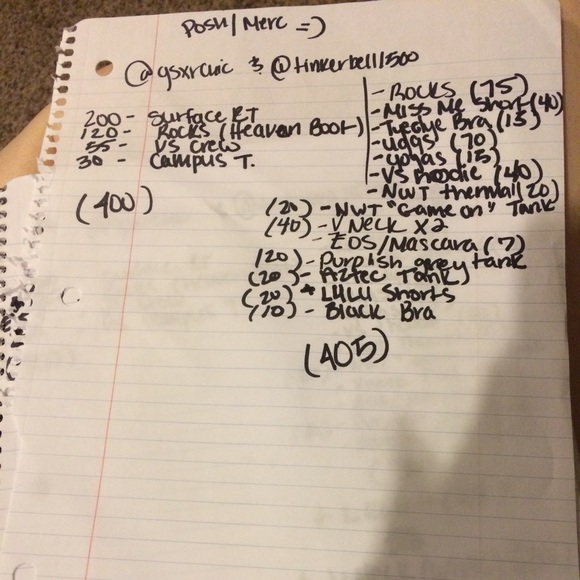 Posh/Merc =)
@gsxrchic & @tinkerbell1500
200 - Surface RT
120 - Rocks (Heaven Boot)
55 - VS crew
30 - Campus T.
(400)
- ROCKS (75)
- Miss Me Short (40)
- Wedge Bra (15)
- uggs (70)
- yogas (15)
- VS Hoodie (40)
- NWT thermal (20)
(20) - NWT "Game on" Tank
(40) - V Neck x2
- EOS/Mascara (7)
(20) - Purplish grey tank
(20) - Aztec Tank)
(20) + LULU Shorts
(10) - Black Bra
(405)